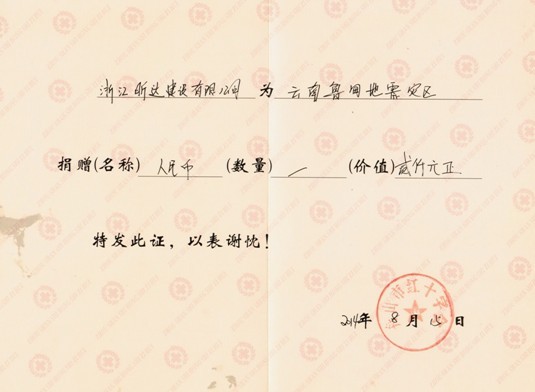 浙江昕达建设有限公司 为 云南鲁甸地震灾区
捐赠(名称) 人民币 (数量) / (价值) 贰仟元正
特发此证，以表谢忱！
市红十字
2014年 8 月 15 日